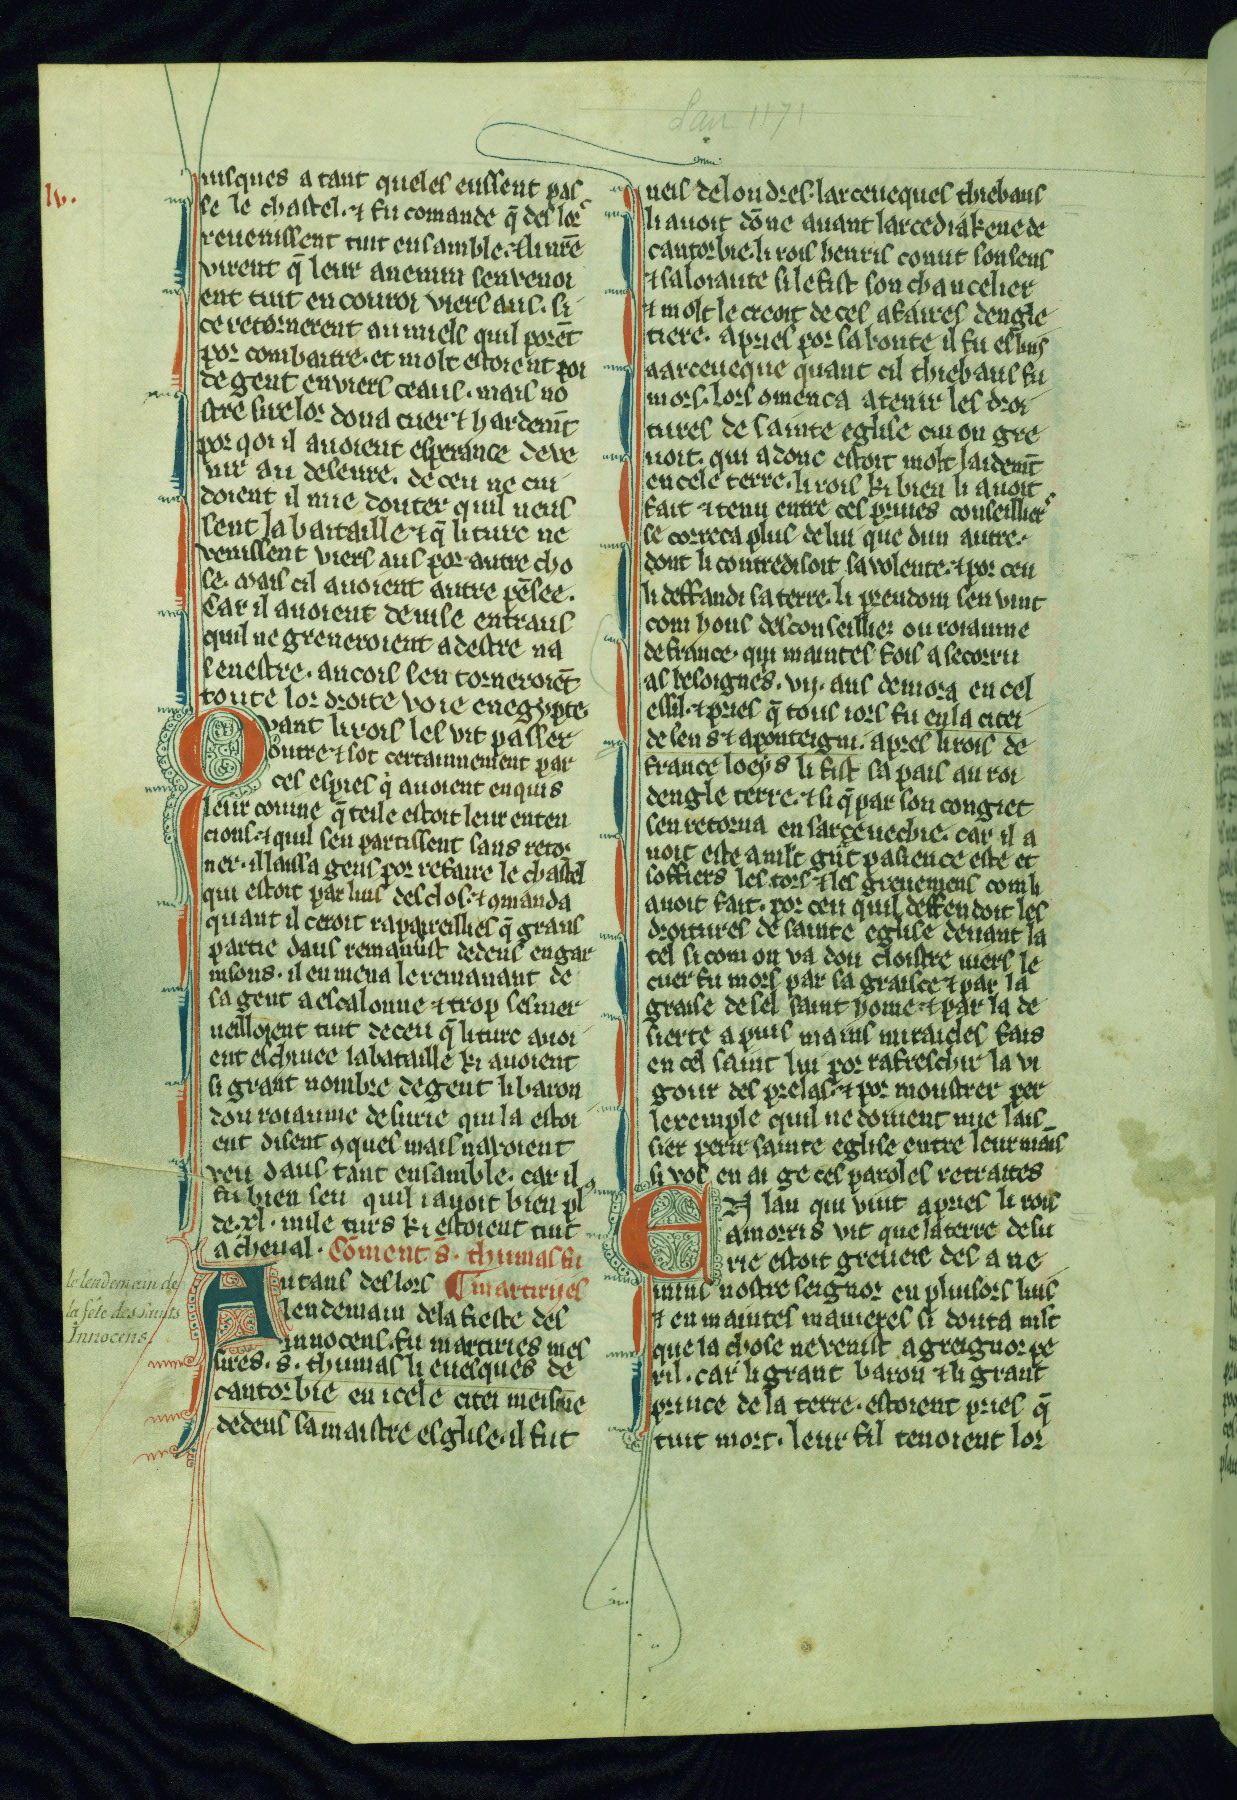 Lan 1171
lv.
iusques a tant queles eussent pas
se le chastel. ⁊ fu comande q̄ des lor᷒
reuenissent tuit ensamble. ⁊ li nr̄e
virent q̄ leur anemin senvenoi
ent tuit en conroi viers aus. si
ce retornerent au miels quil porēt
por combattre. et molt estoient poi
de gent enviers ceaus. mais no
stre sire lor dona cuer ⁊ hardemt̄
por qoi il auoient esperance deve
nir au deseure. de ceu ne cui
doient il mie douter quil neus
sent la bataille ⁊ q̄ li turc ne
venissent viers aus por autre cho
se. mais cil auoient autre pēsee.
Car il auoient devise entraus
quil ne greueroient a destre na
senestre. ancois sen torneroiēt
toute lor droite voie en egypte.
Quant li rois les vit passer
outre ⁊ sot certainnement par
ces espies q̇ auoient enquis
leur comine q̄ teile estoit leur enten
cions. ⁊ quil sen partissent sans retor
ner. il laissa gens por refaire le chastel
qui estoit par luis desclos. ⁊ ꝯmanda
quant il ceroit raparreillies q̄ grans
partie daus remanust dedens en gar
nisons. il en mena le remanant de
sa gent a escalonne ⁊ trop sesmer
ueilloient tuit de ceu q̄ li turc auoi
ent eschiuee la bataille ki auoient
si grant nombre de gent li baron
dou roiaume de surie qui la estoi
ent disent ꝯques mais nauoient
veu daus tant ensamble. car il
fu bien seu quil i auoit bien pl᷒
de .xl. mile turs ki estoient tuit
a cheual. Cōment .s̄. thumas fu
Autans des lors ¶ martiries
lendemain de la fieste des
innocens. fu martiries mes
sires .s̄. thumas li euesques de
cantorbie en icele citei meisme
dedens sa maistre esglise. il fut
le lendemain de
la fête des Saints
Innocens.
neis de londres. larceueques thiebaus
li auoit dōne auant larcediakene de
cantorbie. li rois henris conut son sens
⁊ sa loiaute si le fist son chancelier
⁊ molt le creoit de ces afaires dengle
tiere. apries por sa bonte il fu eslius
a arceueque quant cil thiebaus fu
mors. lors ꝯmenca a tenir les droi
tures de sainte eglise cui on gre
uoit. qui a donc estoit molt laidemt̄
en cele terre. li rois ki bien li auoit
fait ⁊ tenu entre ces priues conseillier᷒
se correca plus de lui que dun autre.
dont li contredisoit sa volente. ⁊ por ceu
li deffandi sa terre. li preudom sen vint
com hons desconseillier ou roiaume
de france. qui maintes fois a secorru
as besoignes. vij. ans demora en cel
essil. ⁊ pries q̄ tous iors fu en la citei
de sens ⁊ a ponteigni. apres li rois de
france loeys li fist sa pais au roi
dengle terre. ⁊ si q̄ par son congiet
sen retorna en sarceuechie. car il a
uoit este a mlt̄ gn̄t pasience este et
soffiers les tors ⁊ les greuemens com li
auoit fait. por ceu quil deffendoit les
droitures de sainte eglise deuant la
tel si com on va dou cloistre viers le
cuer fu mors par sa graisce ⁊ par la
graise de sel saint home ⁊ par la de
sierte a puis mains miracles fais
en cel saint lui por rafreschir la vi
gour des prelas. ⁊ por moustrer per
lexemple quil ne doiuent mie lais
sier perir sainte eglise entre leur mais
si vos en ai ge ces paroles retraites
En lan qui vint apries li rois
amorris vit que la terre de su
rie estoit greueie des ane
mins nostre seignor en pluisors luis
⁊ en maintes manieres si douta mlt̄
que la chose ne venist a greignor pe
ril. car li grant baron ⁊ li grant
prince de la terre. estoient pries q̄
tuit mort. leur fil tenoient lor